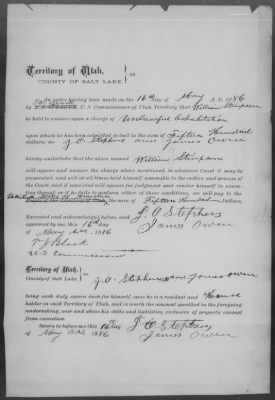 Territory of Utah,
COUNTY OF SALT LAKE. } ss.
An order having been made on the 16th day of May A. D. 1886
by U. S. Commissioner of Utah Territory that William Stimpson
be held to answer upon a charge of Unlawful Cohabitation
upon which he has been admitted to bail in the sum of Fifteen Hundred
dollars, we J. O. Stephens and James Owen
hereby undertake that the above named William Stimpson
will appear and answer the charge above mentioned, in whatever Court it may be
prosecuted, and will at all times hold himself amenable to the orders and process of
the Court, and if convicted will appear for judgment and render himself in execu-
tion thereof; or if he fails to perform either of these conditions, that we will pay to the
United States of America the sum of Fifteen Hundred dollars.
Executed and acknowledged before, and
approved by me, this 16th
day of May A.D. 1886
J O Stephens
James Owen
U S Commissioner
Territory of Utah,
County of Salt Lake. } ss.
J. O. Stephens and James Owen
being each duly sworn each for himself, says he is a resident and House
holder in said Territory of Utah, and is worth the amount specified in the foregoing
undertaking, over and above his debts and liabilities, exclusive of property exempt
from execution.
Sworn to before me this 16th day
of May A.D. 1886
J O Stephens
James Owen